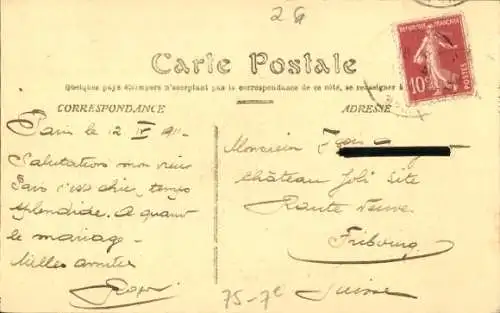 26
RÉPUBLIQUE FRANÇAISE
10c
POSTES
Carte Postale
Quelques pays étrangers n'acceptant pas la correspondance de ce côté, se renseigner à
CORRESPONDANCE
ADRESSE
Paris le 12 IX 911.
Salutations mon vieux
Paris c'est chic, temps
splendide. A quand
le mariage -
Milles amitiés
Roger
Monsieur
Château Joli Site
Route Neuve
Fribourg
Suisse
75-7e